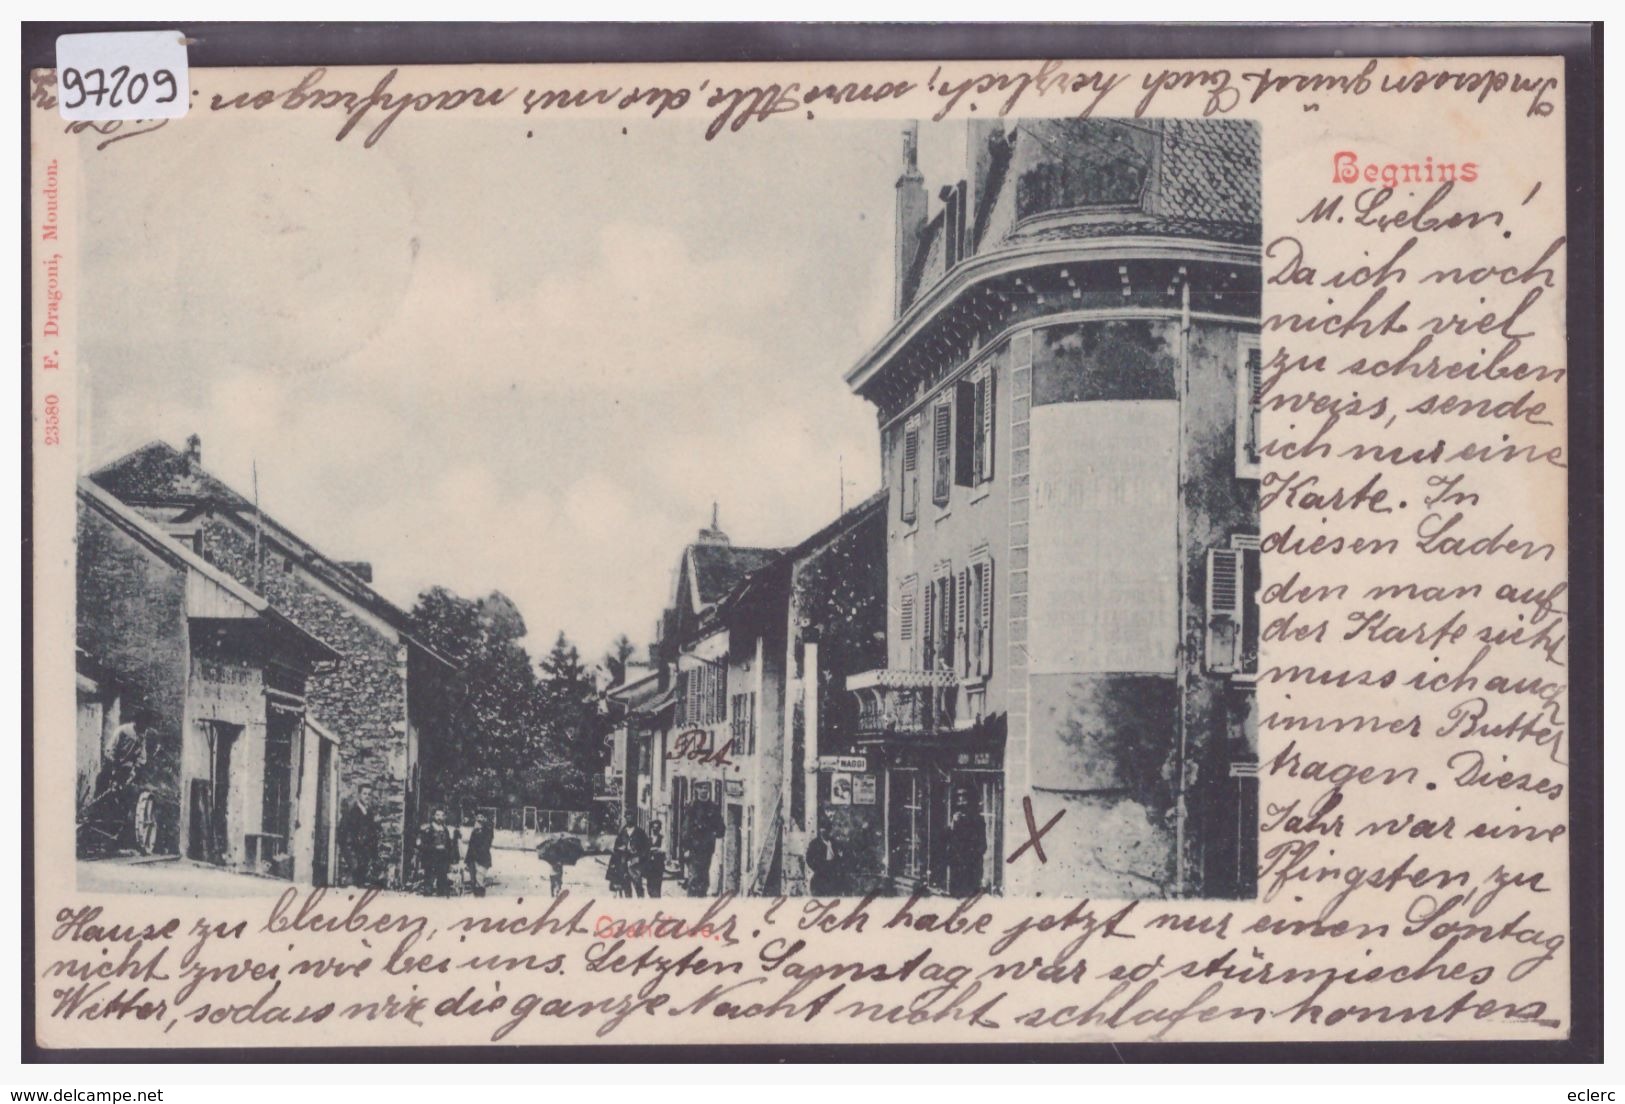 97209
23580 F. Dragoni, Moudon.
Begnins
M. Lieben!
Da ich noch
nicht viel
zu schreiben
weiss, sende
ich nur eine
Karte. In
diesen Laden
den man auf
der Karte sieht
muss ich auch
immer Butter
tragen. Dieses
Jahr war eine
Pfingsten, zu
Hause zu bleiben, nicht wahr? Ich habe jetzt nur einen Sontag
nicht zwei wie bei uns. Letzten Samstag war so stürmisches
Wetter, sodass wir die ganze Nacht nicht schlafen konnten
Indessen grüsst Euch herzlich, sowie Alle, die mir nachfragen:
Post.
MAGGI
X
delcampe.net
eclerc